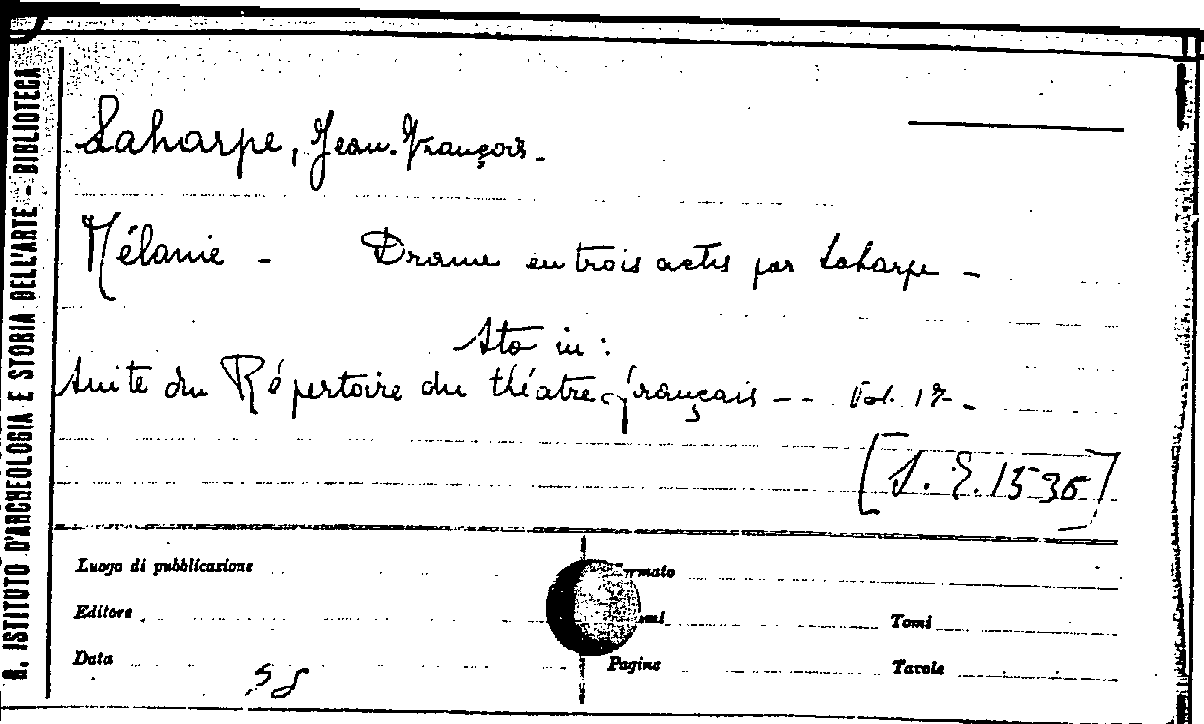 R. ISTITUTO D'ARCHEOLOGIA E STORIA DELL'ARTE - BIBLIOTECA
Laharpe, Jean-François.
Mélanie - Drame en trois actes par Laharpe -
Sta in:
Suite du Répertoire du théatre français -- Vol. 17 -
[S. E. 1536]
Luogo di pubblicazione
Editore Tomi
Data Pagine Tavole